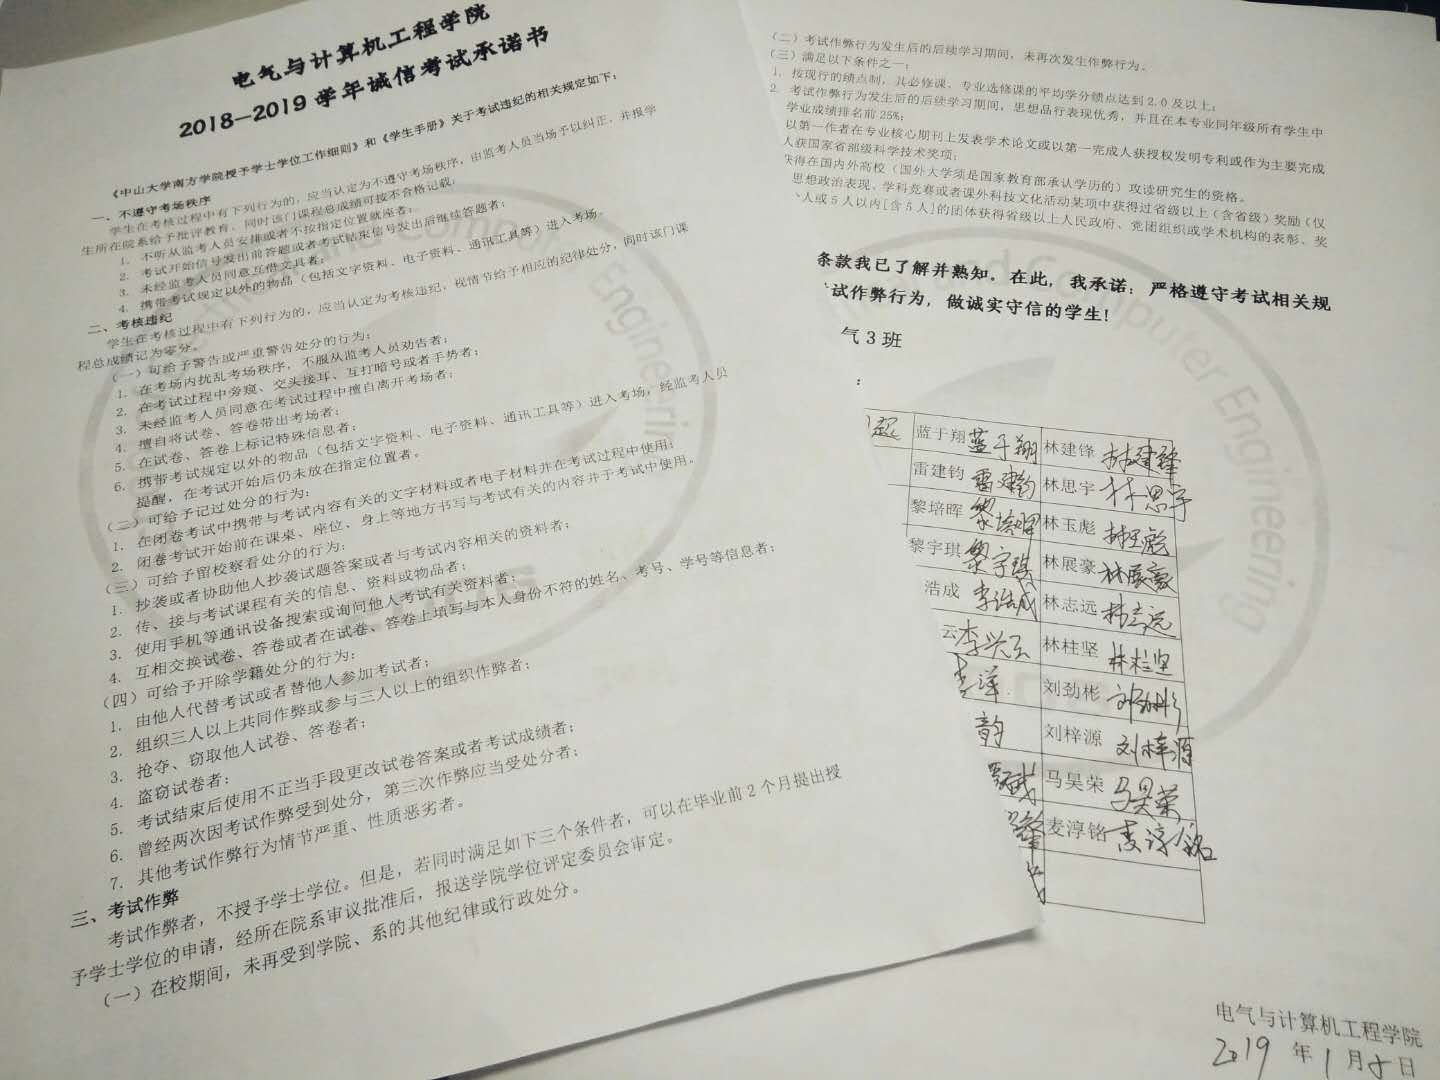 电气与计算机工程学院
2018—2019学年诚信考试承诺书
《中山大学南方学院授予学士学位工作细则》和《学生手册》关于考试违纪的相关规定如下：
一、不遵守考场秩序
学生在考核过程中有下列行为的，应当认定为不遵守考场秩序，由监考人员当场予以纠正，并报学
生所在院系给予批评教育，同时该门课程总成绩可按不合格记载：
1. 不听从监考人员安排或者不按指定位置就座者；
2. 考试开始信号发出前答题或者考试结束信号发出后继续答题者；
3. 未经监考人员同意互借文具者；
4. 携带考试规定以外的物品（包括文字资料、电子资料、通讯工具等）进入考场。
二、考核违纪
学生在考核过程中有下列行为的，应当认定为考核违纪，视情节给予相应的纪律处分，同时该门课
程总成绩记为零分。
（一）可给予警告或严重警告处分的行为：
1. 在考场内扰乱考场秩序，不服从监考人员劝告者；
2. 在考试过程中旁窥、交头接耳、互打暗号或者手势者；
3. 未经监考人员同意在考试过程中擅自离开考场者；
4. 擅自将试卷、答卷带出考场者；
5. 在试卷、答卷上标记特殊信息者；
6. 携带考试规定以外的物品（包括文字资料、电子资料、通讯工具等）进入考场，经监考人员
提醒，在考试开始后仍未放在指定位置者。
（二）可给予记过处分的行为：
1. 在闭卷考试中携带与考试内容有关的文字材料或者电子材料并在考试过程中使用；
2. 闭卷考试开始前在课桌、座位、身上等地方书写与考试有关的内容并于考试中使用。
（三）可给予留校察看处分的行为：
1. 抄袭或者协助他人抄袭试题答案或者与考试内容相关的资料者；
2. 传、接与考试课程有关的信息、资料或物品者；
3. 使用手机等通讯设备搜索或询问他人考试有关资料者；
4. 互相交换试卷、答卷或者在试卷、答卷上填写与本人身份不符的姓名、考号、学号等信息者；
（四）可给予开除学籍处分的行为：
1. 由他人代替考试或者替他人参加考试者；
2. 组织三人以上共同作弊或参与三人以上的组织作弊者；
3. 抢夺、窃取他人试卷、答卷者；
4. 盗窃试卷者；
5. 考试结束后使用不正当手段更改试卷答案或者考试成绩者；
6. 曾经两次因考试作弊受到处分，第三次作弊应当受处分者；
7. 其他考试作弊行为情节严重、性质恶劣者。
三、考试作弊
考试作弊者，不授予学士学位。但是，若同时满足如下三个条件者，可以在毕业前2个月提出授
予学士学位的申请，经所在院系审议批准后，报送学院学位评定委员会审定。
（一）在校期间，未再受到学院、系的其他纪律或行政处分。
（二）考试作弊行为发生后的后续学习期间，未再次发生作弊行为。
（三）满足以下条件之一：
1. 按现行的绩点制，其必修课、专业选修课的平均学分绩点达到2.0及以上；
2. 考试作弊行为发生后的后续学习期间，思想品行表现优秀，并且在本专业同年级所有学生中
学业成绩排名前25%；
以第一作者在专业核心期刊上发表学术论文或以第一完成人获授权发明专利或作为主要完成
人获国家省部级科学技术奖项；
获得在国内外高校（国外大学须是国家教育部承认学历的）攻读研究生的资格。
思想政治表现、学科竞赛或者课外科技文化活动某项中获得过省级以上（含省级）奖励（仅
人或5人以内[含5人]的团体获得省级以上人民政府、党团组织或学术机构的表彰、奖
条款我已了解并熟知。在此，我承诺：严格遵守考试相关规
试作弊行为，做诚实守信的学生！
气3班
：
起 蓝于翔 蓝于翔 林建锋 林建锋
雷建钧 雷建钧 林思宇 林思宇
黎培晖 黎培晖 林玉彪 林玉彪
黎宇琪 黎宇琪 林展豪 林展豪
浩成 李浩成 林志远 林志远
云 李兴云 林柱坚 林柱坚
李洋 刘劲彬 刘劲彬
韵 刘梓源 刘梓源
马昊荣 马昊荣
麦淳铭 麦淳铭
电气与计算机工程学院
2019年1月8日
and Computer Engineering
and Computer Engineering